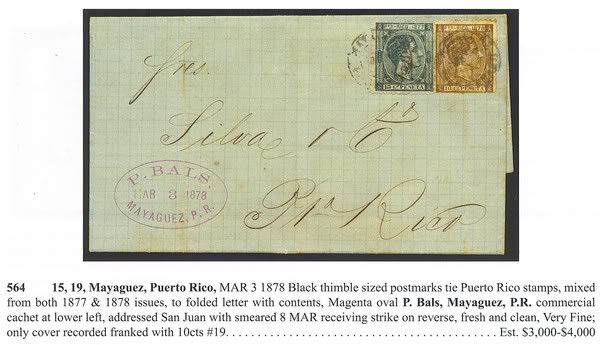 Pto RICO 1877
15 Cs PESETA
Pto RICO 1878
10 Cs PESETA
Sres.
Silva y Ca
Pto Rico
P. BALS.
MAR 3 1878
MAYAGUEZ, P.R.
564 15, 19, Mayaguez, Puerto Rico, MAR 3 1878 Black thimble sized postmarks tie Puerto Rico stamps, mixed
from both 1877 & 1878 issues, to folded letter with contents, Magenta oval P. Bals, Mayaguez, P.R. commercial
cachet at lower left, addressed San Juan with smeared 8 MAR receiving strike on reverse, fresh and clean, Very Fine;
only cover recorded franked with 10cts #19. . . . . . . . . . . . . . . . . . . . . . . . . . . . . . . . . . . . . . . . . . Est. $3,000-$4,000